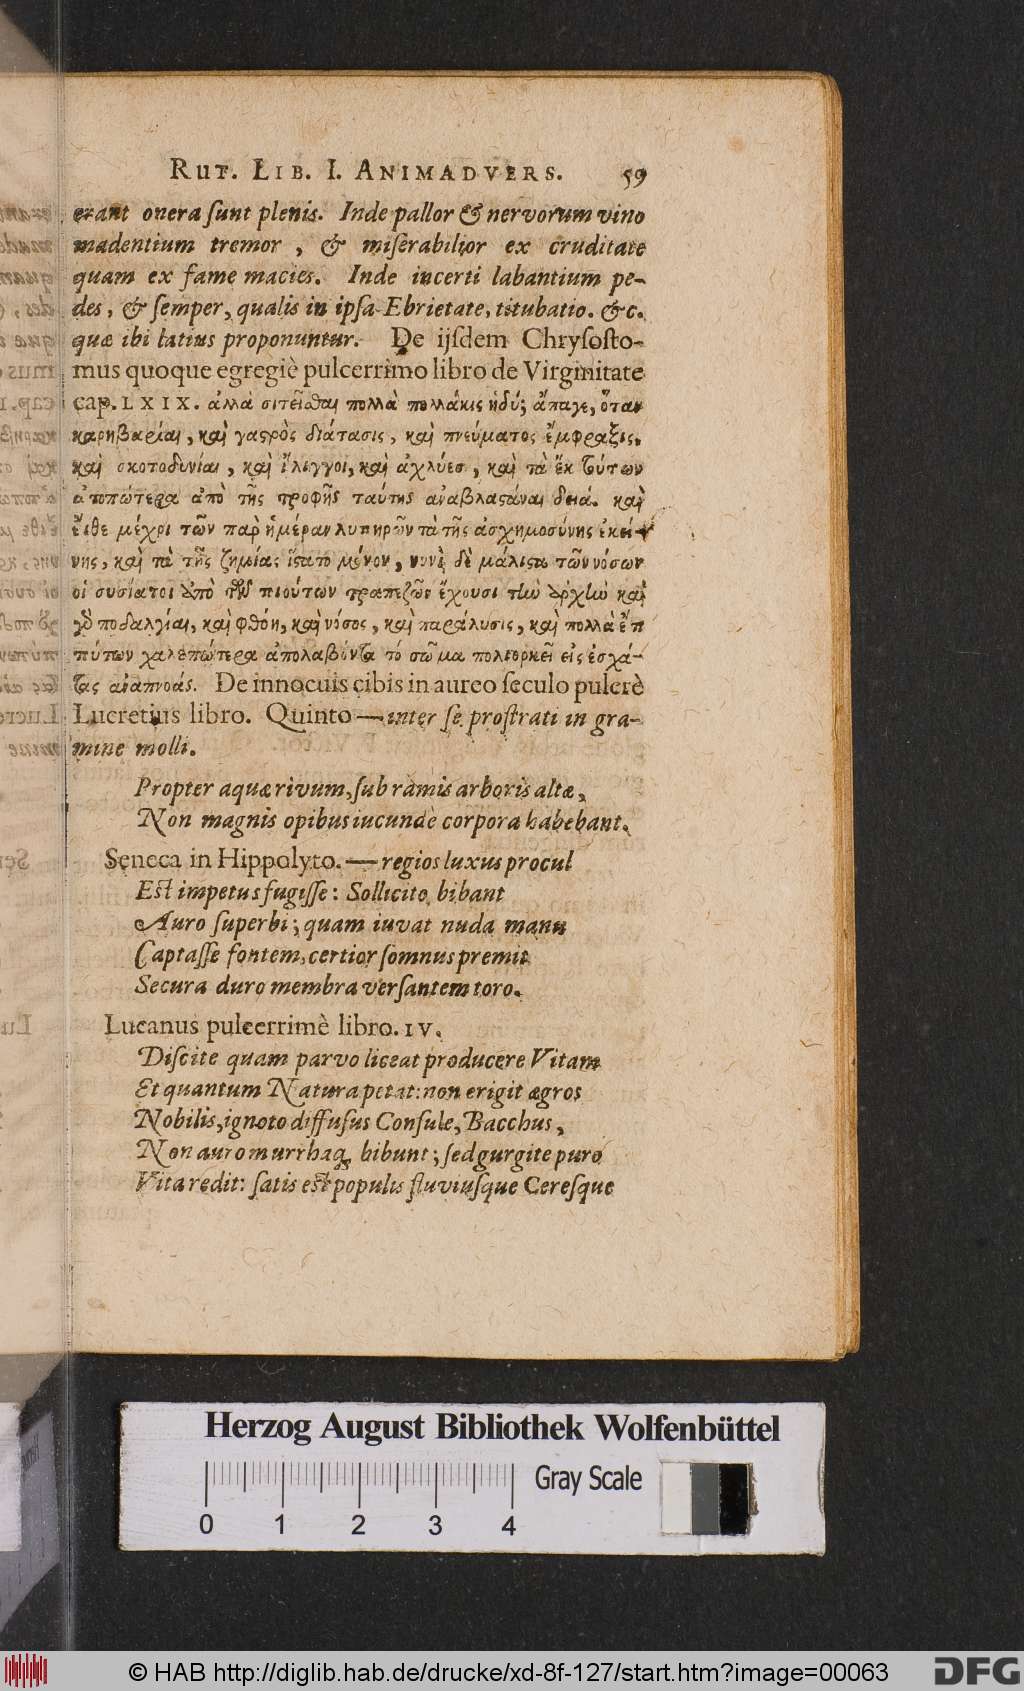 RUT. LIB. I. ANIMADVERS. 59
erant onera ſunt plenis. Inde pallor & nervorum vino
madentium tremor, & miſerabilior ex cruditate
quam ex fame macies. Inde incerti labantium pe-
des, & ſemper, qualis in ipſa Ebrietate, titubatio. &c.
quæ ibi latius proponuntur. De ijſdem Chryſoſto-
mus quoque egregiè pulcerrimo libro de Virginitate
cap. LXIX. ἀλλὰ σιτεῖσθαι πολλὰ πολλάκις ἡδύ; ἄπαγε, ὅταν
καρηβαρίαι, καὶ γαστρὸς διάτασις, καὶ πνεύματος ἔμφραξις,
καὶ σκοτοδυνίαι, καὶ ἴλιγγοι, καὶ ἀχλύες, καὶ τὰ ἔκ τούτων
ἀτοπώτερα ἀπὸ τῆς τροφῆς ταύτης ἀναβλαστάναι δεια. καὶ
εἴθε μέχρι τῶν παρ ἡμέραν λυπηρῶν τὰ τῆς ἀσχημοσύνης ἐκεί-
νης, καὶ τὰ τῆς ζημίας ἵστατο μόνον, νυνὶ δὲ μάλιστα τῶν νόσων
οἱ ἀπὸ τῶν τραπεζῶν ἔχουσι τὴν ἀρχὴν καὶ
γὸ ποδαλγίαι, καὶ φθόη, καὶ νόσος, καὶ παράλυσις, καὶ πολλὰ ἔτι
τύτων χαλεπώτερα ἀπολαβόντα τό σῶμα πολιορκεῖ εἰς ἐσχά-
τας ἀναπνοάς. De innocuis cibis in aureo ſeculo pulcrè
Lucretius libro. Quinto — inter ſe proſtrati in gra-
mine molli.
Propter aquæ rivum, ſub ramis arboris altæ,
Non magnis opibus iucundè corpora habebant.
Seneca in Hippolyto. — regios luxus procul
Eſt impetus fugiſſe: Sollicito bibant
Auro ſuperbi; quam iuvat nuda manu
Captaſſe fontem, certior ſomnus premit
Secura duro membra verſantem toro.
Lucanus pulcerrimè libro. IV.
Diſcite quam parvo liceat producere Vitam
Et quantum Natura petat: non erigit ægros
Nobilis, ignoto diffuſus Conſule, Bacchus,
Non auro murrhaq; bibunt; ſed gurgite puro
Vita redit: ſatis eſt populis fluviuſque Cereſque
Herzog August Bibliothek Wolfenbüttel
Gray Scale
0 1 2 3 4
© HAB http://diglib.hab.de/drucke/xd-8f-127/start.htm?image=00063
DFG